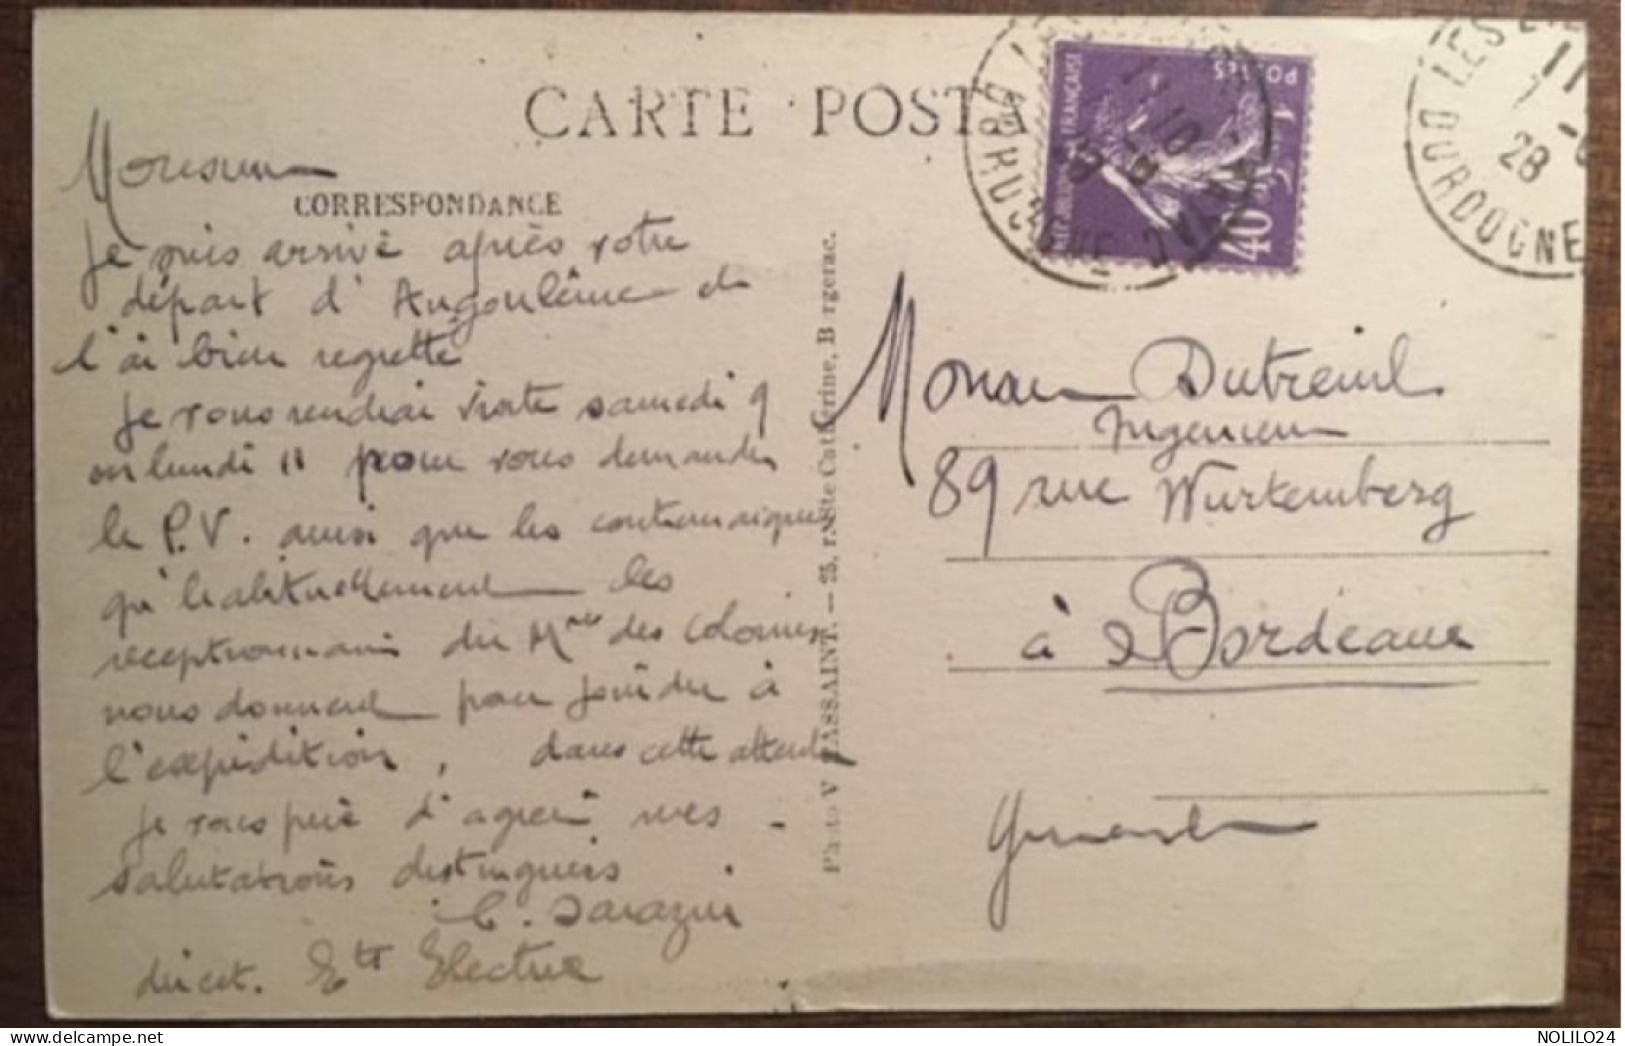 CARTE POSTA
CORRESPONDANCE
Monsieur
Je suis arrivé après votre
départ d'Angoulême et
l'ai bien regretté
Je vous rendrai visite samedi 9
ou lundi 11 pour vous demander
le P.V. ainsi que les
qu'habituellement les
réceptionnaires du Mre des Colonies
nous donnent pour joindre à
l'expédition, dans cette attente
Je vous prie d'agréer mes
salutations distinguées
C. Sarazin
direct. Ets Electra
Photo V ASSAINT. — 25, r. Ste Catherine, B rgerac.
POSTES
FRANÇAISE
40
LES
DORDOGNE
28
Monsieur Dutreuil
Ingenieur
89 rue Wurtemberg
à Bordeaux
Gironde
NOLILO24